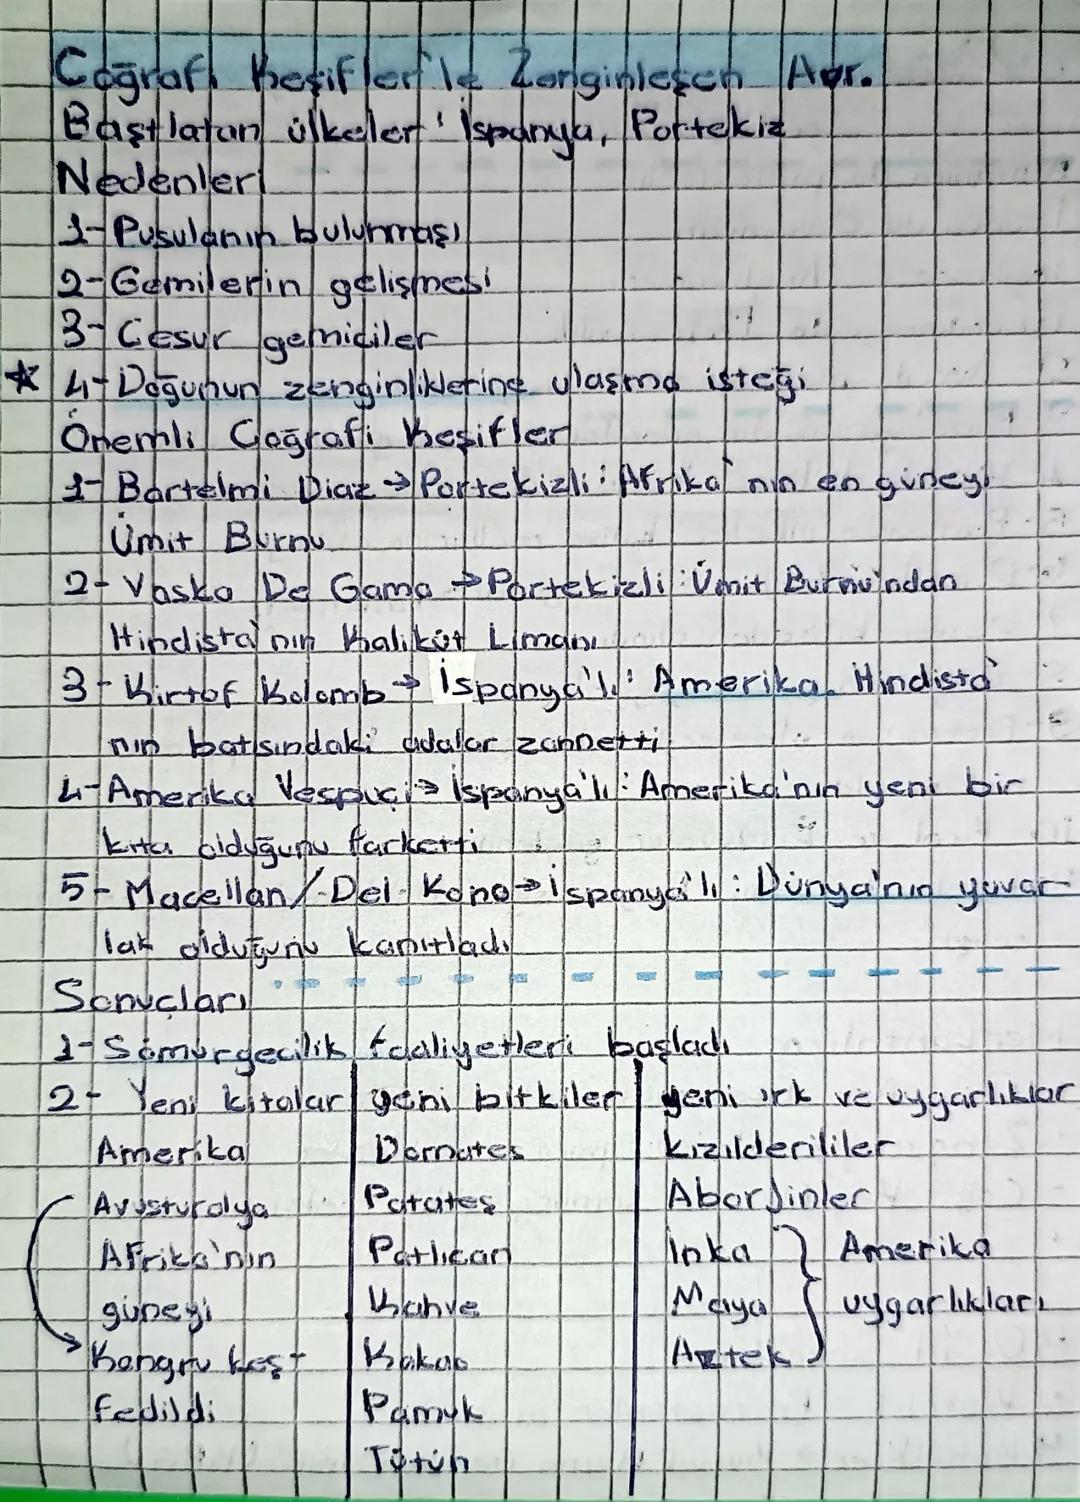 Coğrafi Keşifler'le Zenginleşen Avr.
Baştlatan ülkeler: İspanya, Portekiz
Nedenleri
1- Pusulanın bulunması
2- Gemilerin gelişmesi
3- Cesur gemiciler
☆ 4- Doğunun zenginliklerine ulaşma isteği
Önemli Coğrafi Keşifler
1- Bartelmi Diaz → Portekizli: Afrika'nın en güneyi
Ümit Burnu
2- Vasko De Gama → Portekizli: Ümit Burnu'ndan
Hindista'nın Kaliküt Limanı
3- Kirtof Kolomb → İspanya'lı: Amerika. Hindista'
nın batısındaki adalar zannetti
4- Amerika Vespuçi → İspanya'lı: Amerika'nın yeni bir
kıta olduğunu farketti
5- Macellan/-Del-Kano → İspanya'lı: Dünya'nın yuvar-
lak olduğunu kanıtladı
Sonuçları
1- Sömürgecilik faaliyetleri başladı
2- Yeni kıtalar yeni bitkiler yeni ırk ve uygarlıklar
Amerika Domates Kızılderililer
Avusturalya Patates Aborjinler
Afrika'nın Patlıcan İnka } Amerika
güneyi Kahve Maya uygarlıkları
Kongru keş- Kakao Aztek
fedildi Pamuk
Tütün